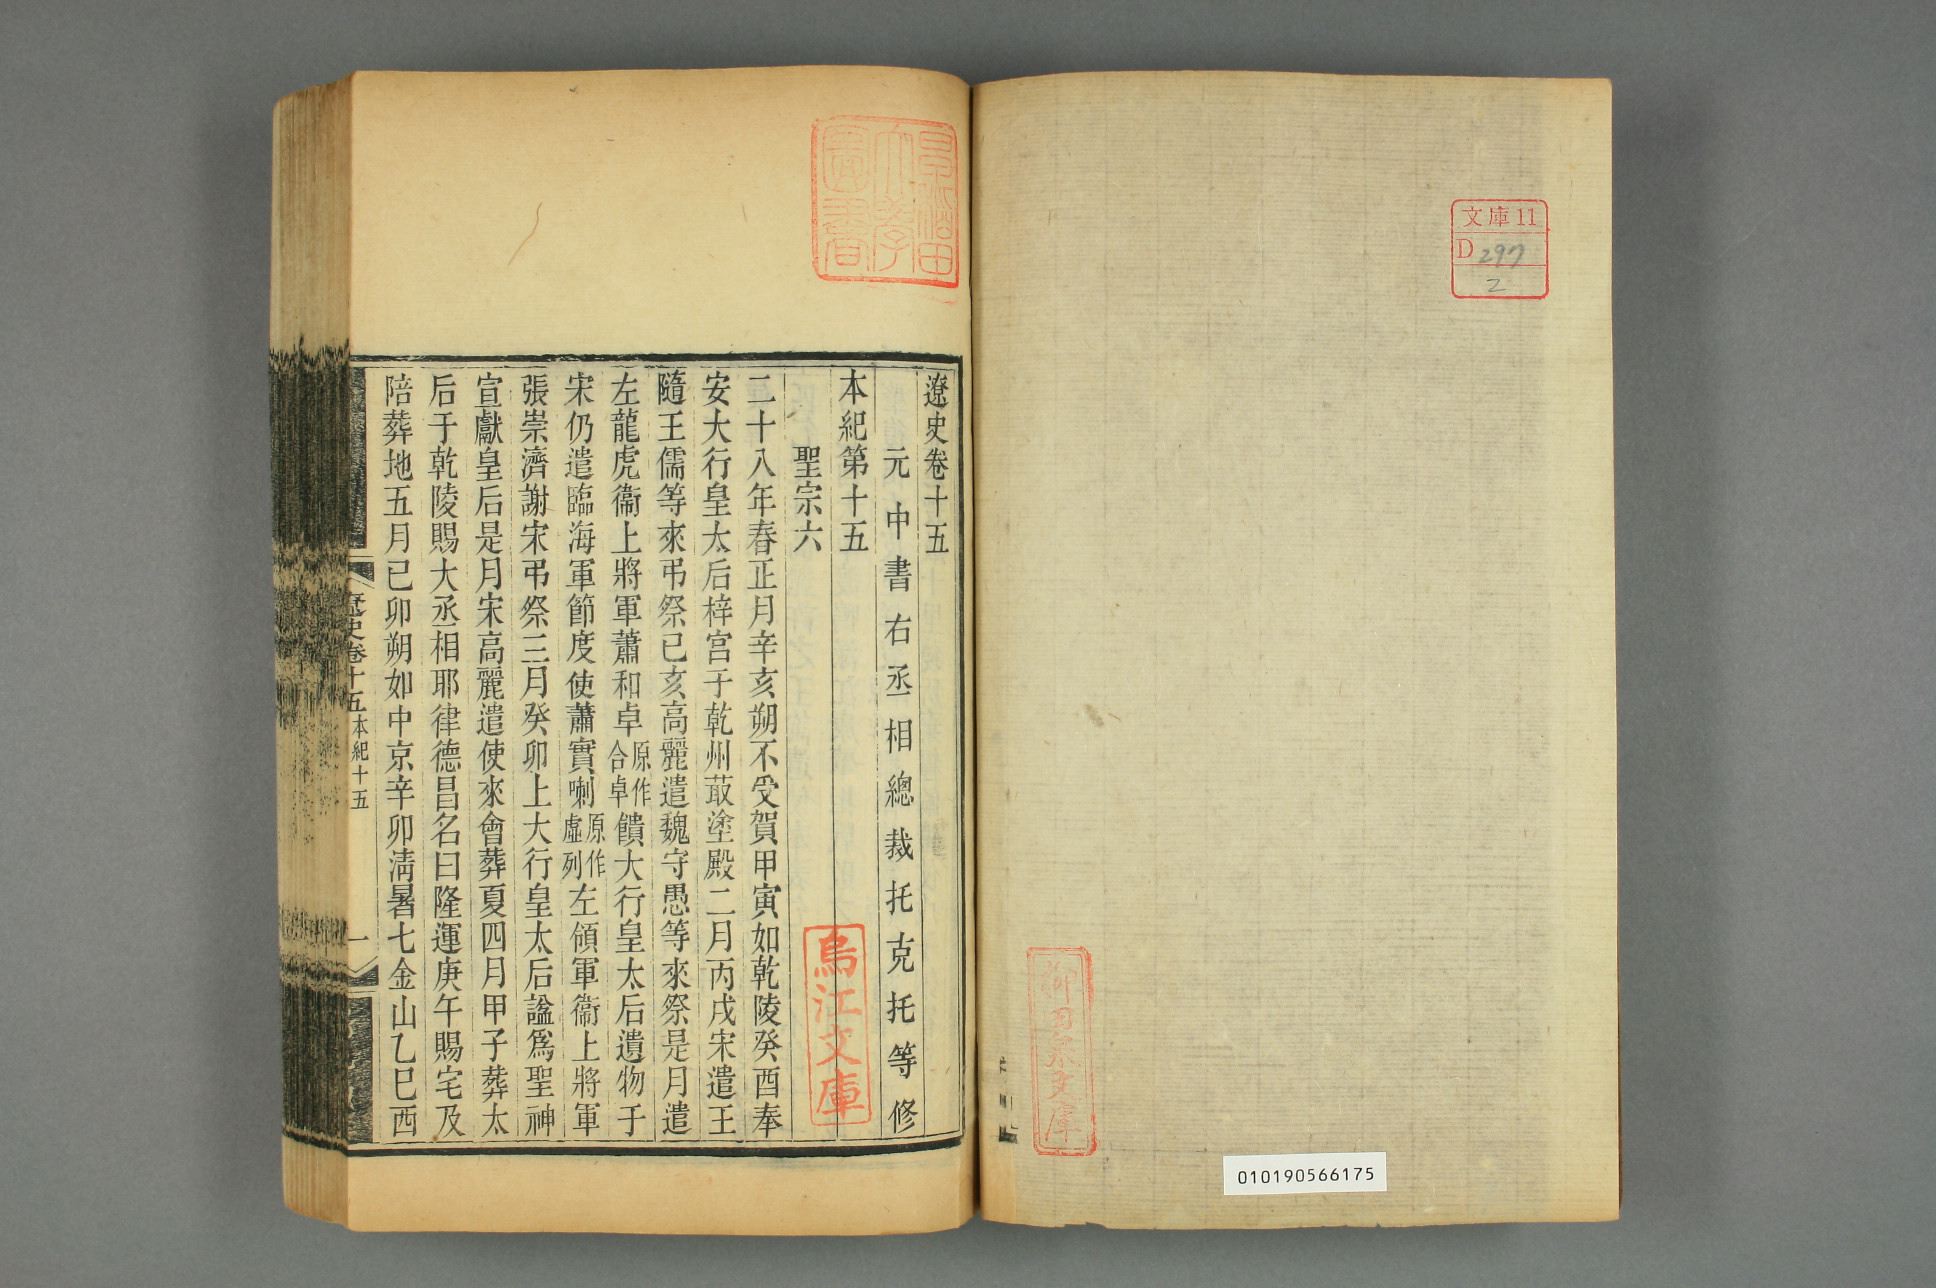 文庫11
D 297
2
010190566175
遼史卷十五
元中書右丞相總裁托克托等修
本紀第十五
聖宗六
二十八年春正月辛亥朔不受賀甲寅如乾陵癸酉奉
安大行皇太后梓宮于乾州菆塗殿二月丙戌宋遣王
隨王儒等來弔祭己亥高麗遣魏守愚等來祭是月遣
左龍虎衞上將軍蕭和卓原作合卓饋大行皇太后遺物于
宋仍遣臨海軍節度使蕭實喇原作虛列左領軍衞上將軍
張崇濟謝宋弔祭三月癸卯上大行皇太后諡爲聖神
宣獻皇后是月宋高麗遣使來會葬夏四月甲子葬太
后于乾陵賜大丞相耶律德昌名曰隆運庚午賜宅及
陪葬地五月己卯朔如中京辛卯淸暑七金山乙巳西
遼史卷十五 本紀十五 一
早稻田大學圖書
烏江文庫